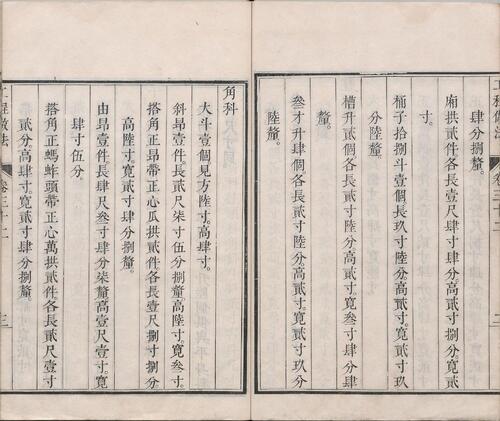 肆分捌釐。
廂拱貳個各長壹尺肆寸肆分高貳寸捌分寬貳
寸。
桶子拾捌斗壹個長玖寸陸分高貳寸。寬貳寸玖
分陸釐。
槽升貳個各長貳寸陸分高貳寸。寬叁寸肆分肆
釐。
叁才升肆個各長貳寸陸分高貳寸。寬貳寸玖分
陸釐。
角科
大斗壹個見方陸寸。高肆寸。
斜昂壹件。長貳尺柒寸伍分捌釐。高陸寸。寬叁寸。
搭角正昂帶正心瓜拱貳件各長壹尺捌寸捌分。
高陸寸寬貳寸肆分捌釐。
由昂壹件。長肆尺叁寸肆分柒釐高壹尺壹寸。寬
肆寸伍分。
搭角正螞蚱頭帶正心萬拱貳件各長貳尺壹寸
貳分。高肆寸。寬貳寸肆分捌釐。
卷三十二
三